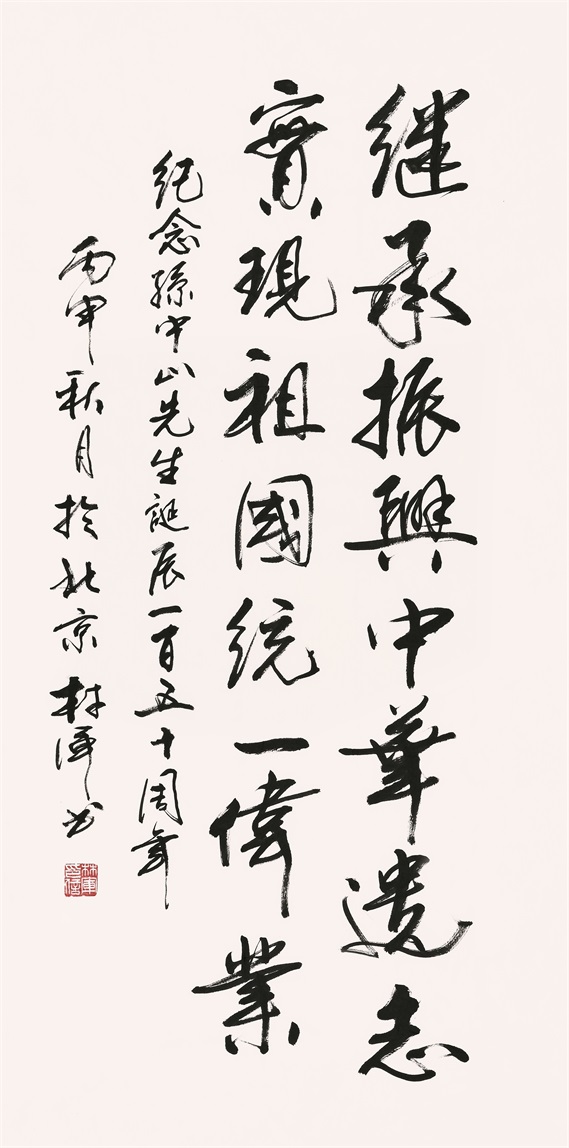 继承振興中華遺志
實現祖國統一偉業
纪念孫中山先生誕辰一百五十周年
丙申秋月於北京林軍书
林軍印信